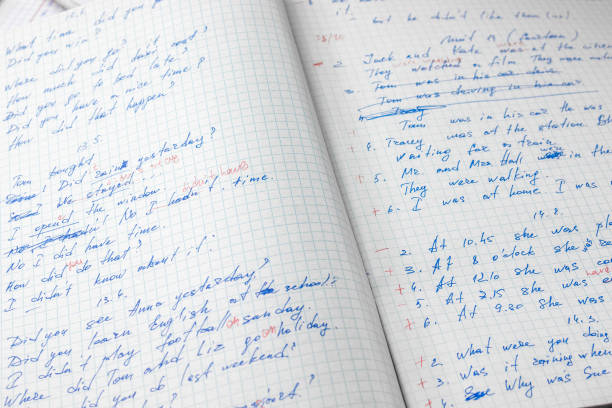 What time did you
Did you win?
Where did you go?
How much did it cost?
Did you go to bed late?
Did you have a nice time?
How did that happen?
13.5.
Tom bought
! Did yestarday?
We stayed
I opend the window.
No I hadn't time.
No I did have time.
How did you do that?
I didn't know about it.
13.4.
Did you see Anna yesterday?
Did you learn English at the school?
I didn't play football on sanday.
Where did Tom and Liz go on holiday.
you do last weekend?
it, but he didn't like them
28/30 Unit 13 (
- 2. Jack and Kate was at the
They watched a film. They were
3. Tom was in his car
Tom was driving in his car
Tracy
Tom was in his car the was
+ 4. Tracey was at the station.
waiting for a train.
+ 5. Mr and Mrs Hall were in the
They were walking.
+ 6. I was at home I was
14.2.
- 2. At 10.45 she was
+ 3. At 8 o'clock she
+ 4. At 12.10 she was
- 5. At 7.15 she was
+ 6. At 9.30 she was
14.3.
+ 2. What were you doing
+ 3. Was it raining when
+ 4. Why was Sue